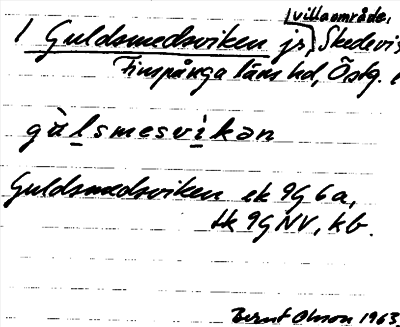 villaområde,
1 Guldsmedsviken js, Skedevi s
Finspånga läns hd, Östg.
gùlsmesvikən
Guldsmedsviken ek 9G 6a,
Hk 9G NV, kb.
Bernt Olsson 1963